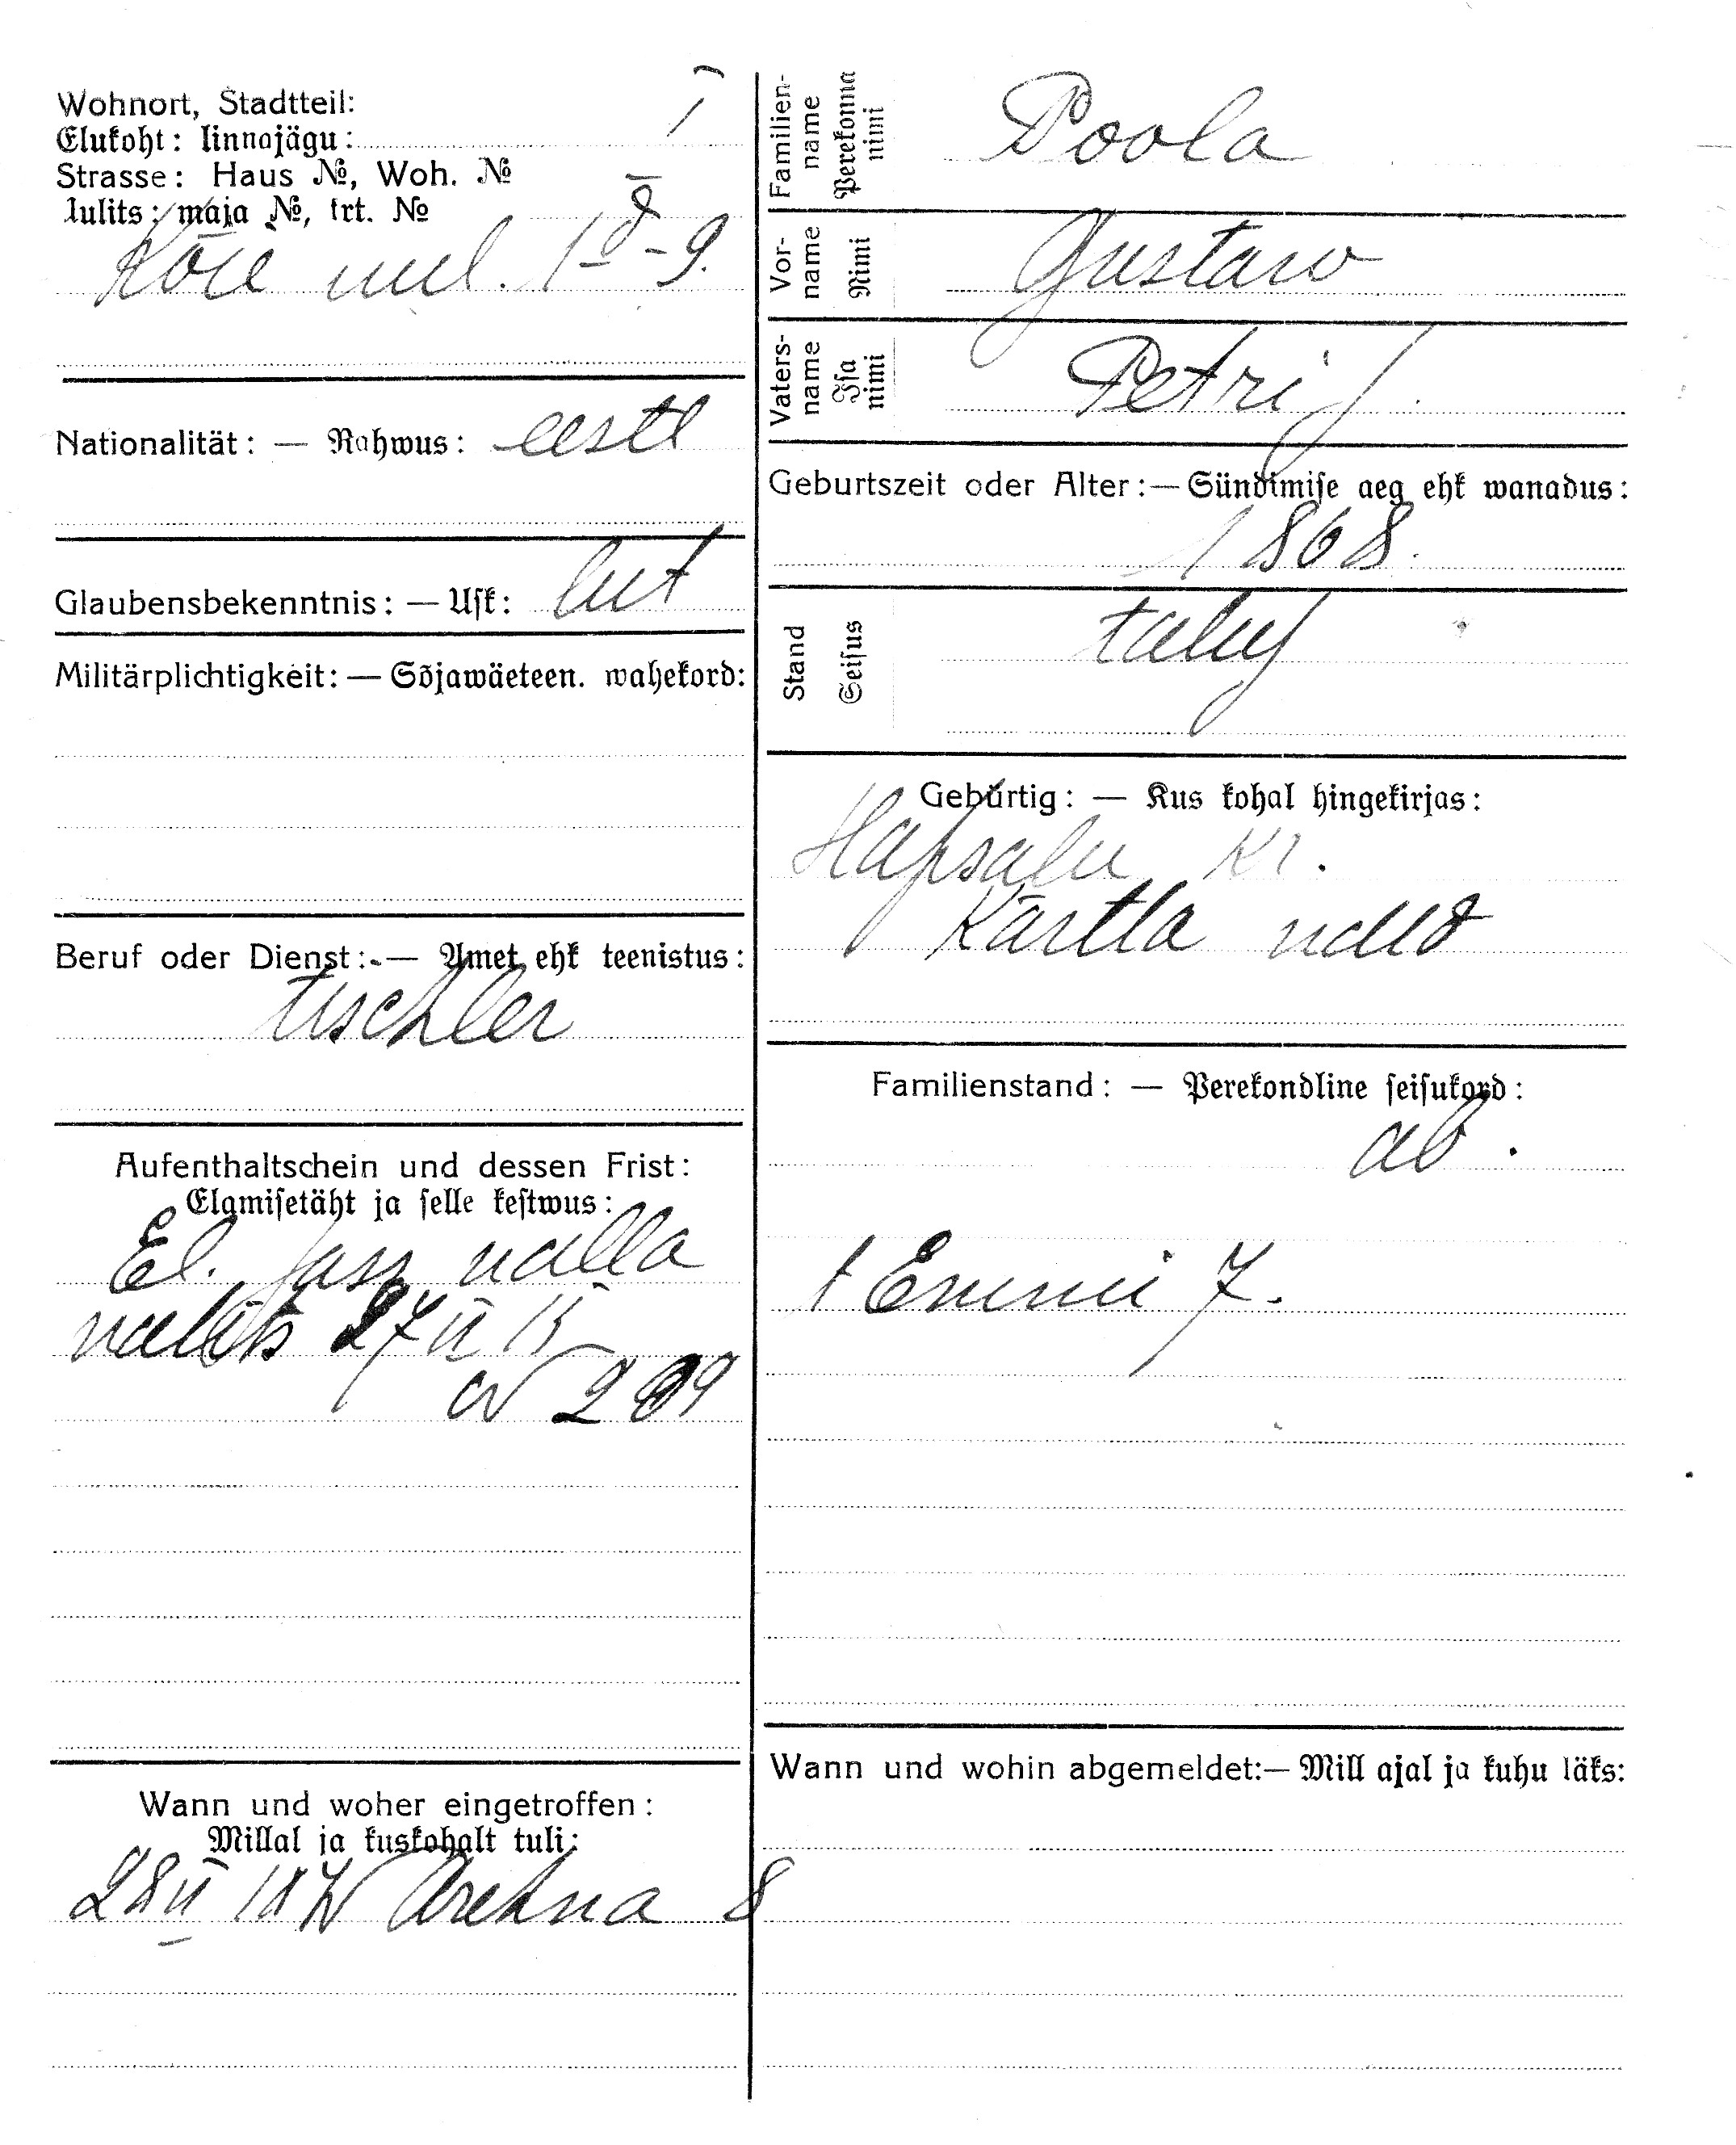 Wohnort, Stadtteil:
Elukoht: linnajägu: I
Strasse: Haus №, Woh. №
Tulits: maja №, krt. №
Köie 1 - 9.
Nationalität: — Rahwus: eestl
Glaubensbekenntnis: — Usk: lut
Militärplichtigkeit: — Sõjawäeteen. wahekord:
Beruf oder Dienst: — Amet ehk teenistus:
tischler
Aufenthaltschein und dessen Frist:
Elamisetäht ja selle kestwus:
El. pass valla
valits 27 II 15
N 209
Wann und woher eingetroffen:
Millal ja kuskohalt tuli:
28 II 18 8
Familien-name Perekonna nimi Poola
Vor-name Nimi Gustaw
Vaters-name Isa nimi Petri j.
Geburtszeit oder Alter: — Sündimise aeg ehk wanadus:
1868.
Stand Seisus talup
Gebürtig: — Kus kohal hingekirjas:
Hapsalu Kr.
Kärtla vald
Familienstand: — Perekondline seisukord:
ab.
t Emmi 7.
Wann und wohin abgemeldet: — Mill ajal ja kuhu läks: